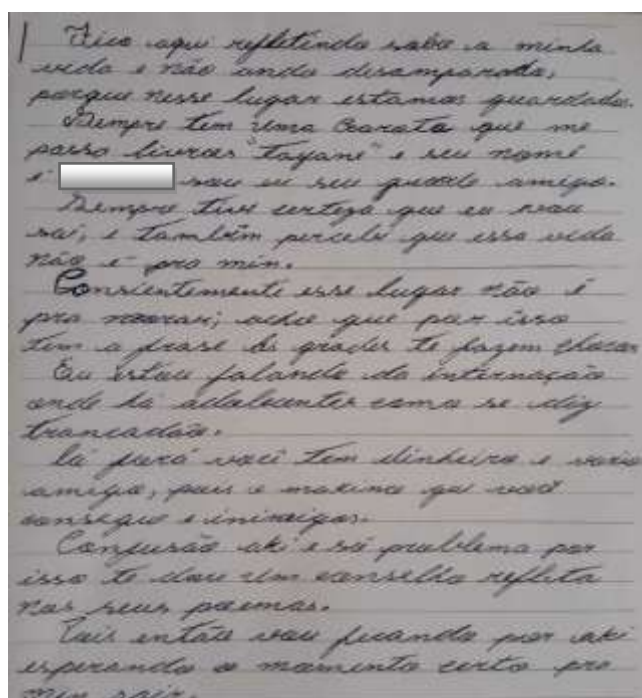 Fico aqui refletindo sobre a minha
vida e não ando desamparado,
porque nesse lugar estamos guardados.
Sempre tem uma Garota que me
passa livros "Tayane" e seu nome
é sou eu seu grande amigo.
Sempre tive certeza que eu vou
sai, e também percebi que essa vida
não é pra min.
Conscientemente esse lugar não é
pra morar; acho que por isso
tem a frase As grades te fazem chorar
Eu estou falando da internação
onde há adolecentes como se diz
trancadão.
lá fora você tem dinheiro e vario
amigo, pois o maximo que você
consegue e inimigos.
Confusão aki e só problema por
isso te dou um conselho reflita
nos seus poemas.
entâo vou ficando por aki
esperando o momento certo pra
min sair.